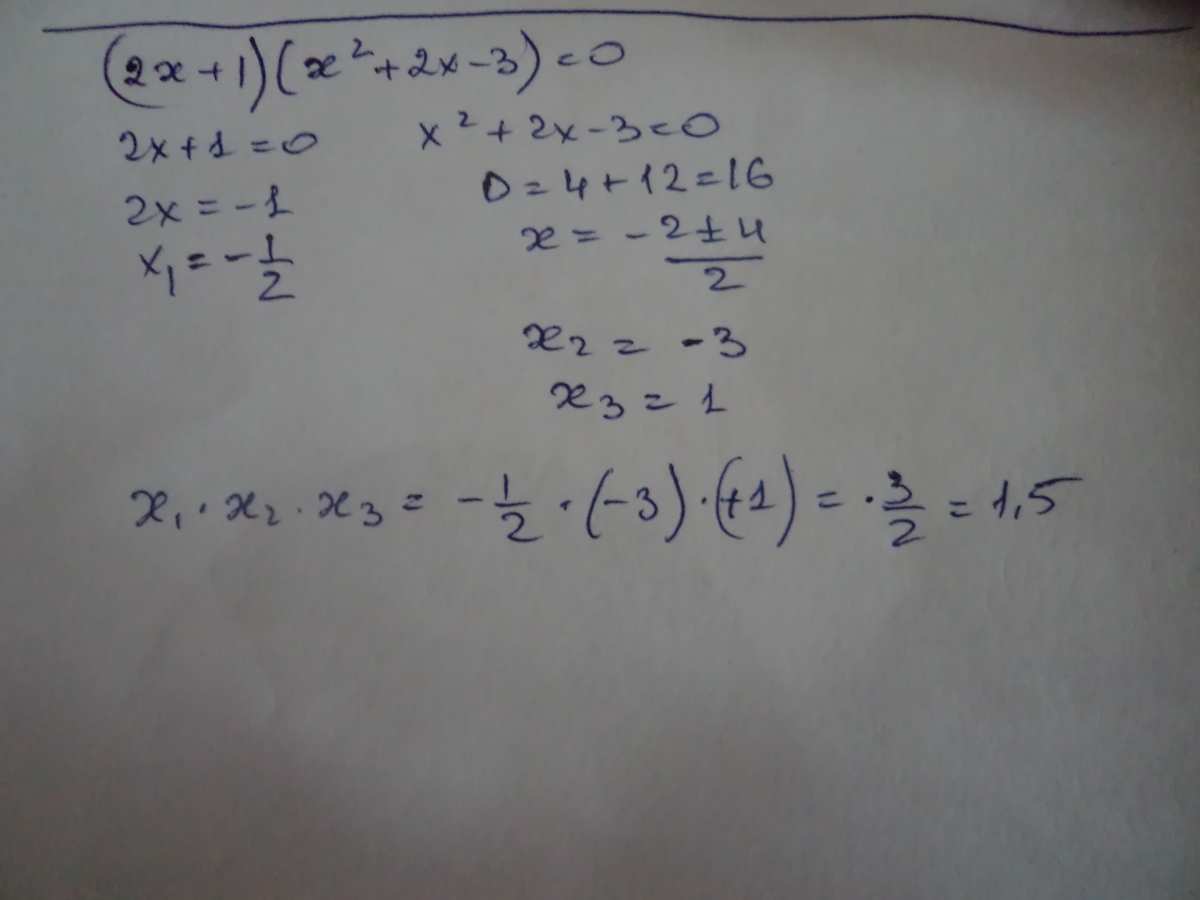 (2x+1)(x²+2x-3)=0
2x+1=0 x²+2x-3=0
2x=-1 D=4+12=16
x₁=-1/2 x=-2±4/2
x₂=-3
x₃=1
x₁·x₂·x₃=-1/2·(-3)·(+1)=·3/2=1,5